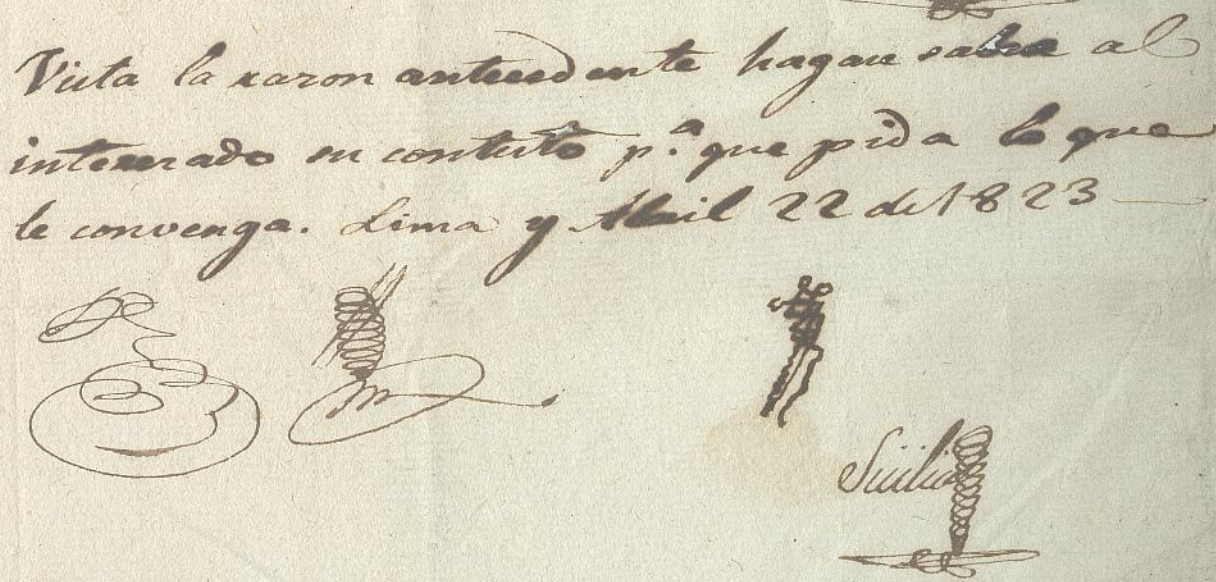 Vista la razon antecedente hagase saber al
interesado su contesto p.ª que pida lo que
le convenga. Lima y Abril 22 de 1823
Sicilia